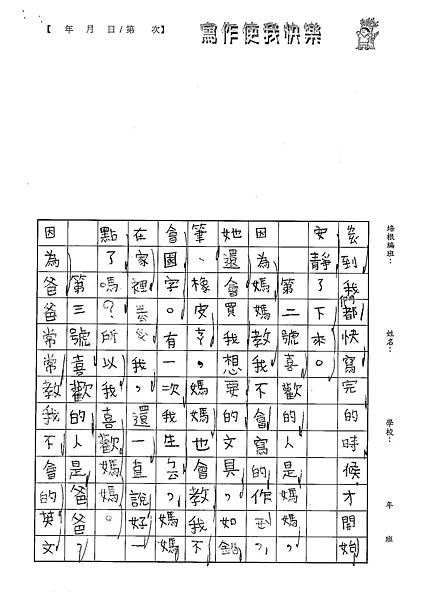 【 年 月 日/第 次】
寫作使我快樂
培根編班：
姓名：
學校：
年 班
到我們都快寫完的時候才開始
安靜了下來。
第二號喜歡的人是媽媽，
因為媽媽教我不會寫的作
她還會買我想要的文具，如鉛
筆、橡皮，媽媽也會教我不
會國字。有一次我生，媽媽
在家裡我，還一直說好一
點了嗎？所以我喜歡媽媽。
第三號喜歡的人是爸爸，
因為爸爸常常教我不會的英文，